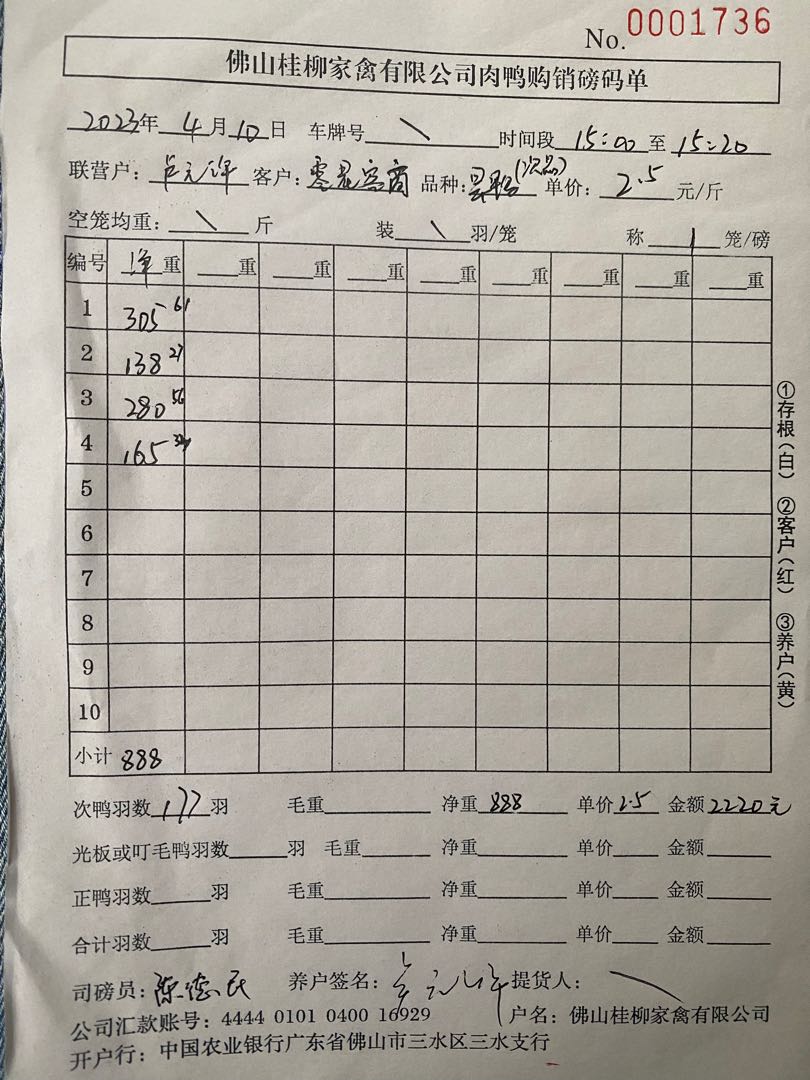 No. 0001736
佛山桂柳家禽有限公司肉鸭购销磅码单
2023年 4月10日 车牌号 \ 时间段 15:00 至 15:20
联营户: 客户: 零星客商 品种: (次品) 单价: 2.5 元/斤
空笼均重: \ 斤 装 \ 羽/笼 称 1 笼/磅
编号 净重 重 重 重 重 重 重 重 重
1 305 61
2 138 27
3 280 56
4 165
5
6
7
8
9
10
小计 888
①存根(白) ②客户(红) ③养户(黄)
次鸭羽数 177 羽 毛重 净重 888 单价 2.5 金额 2220元
光板或叮毛鸭羽数 羽 毛重 净重 单价 金额
正鸭羽数 羽 毛重 净重 单价 金额
合计羽数 羽 毛重 净重 单价 金额
司磅员: 陈德民 养户签名: 提货人: \
公司汇款账号: 4444 0101 0400 16929 户名: 佛山桂柳家禽有限公司
开户行: 中国农业银行广东省佛山市三水区三水支行